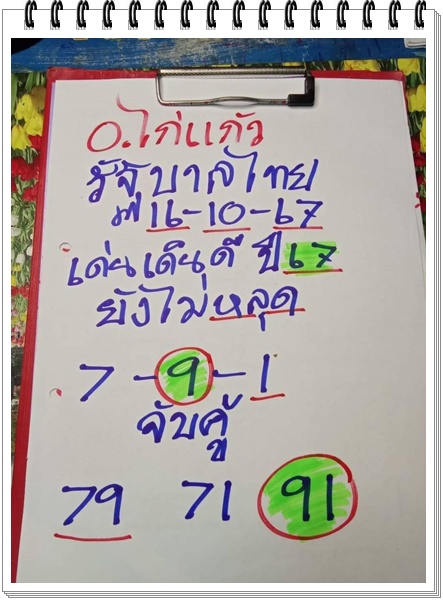 อ.ไก่แก้ว
รัฐบาลไทย
16-10-67
เด่นเดินดี ปี 67
ยังไม่หลุด
7-9-1
จับคู่
79 71 91